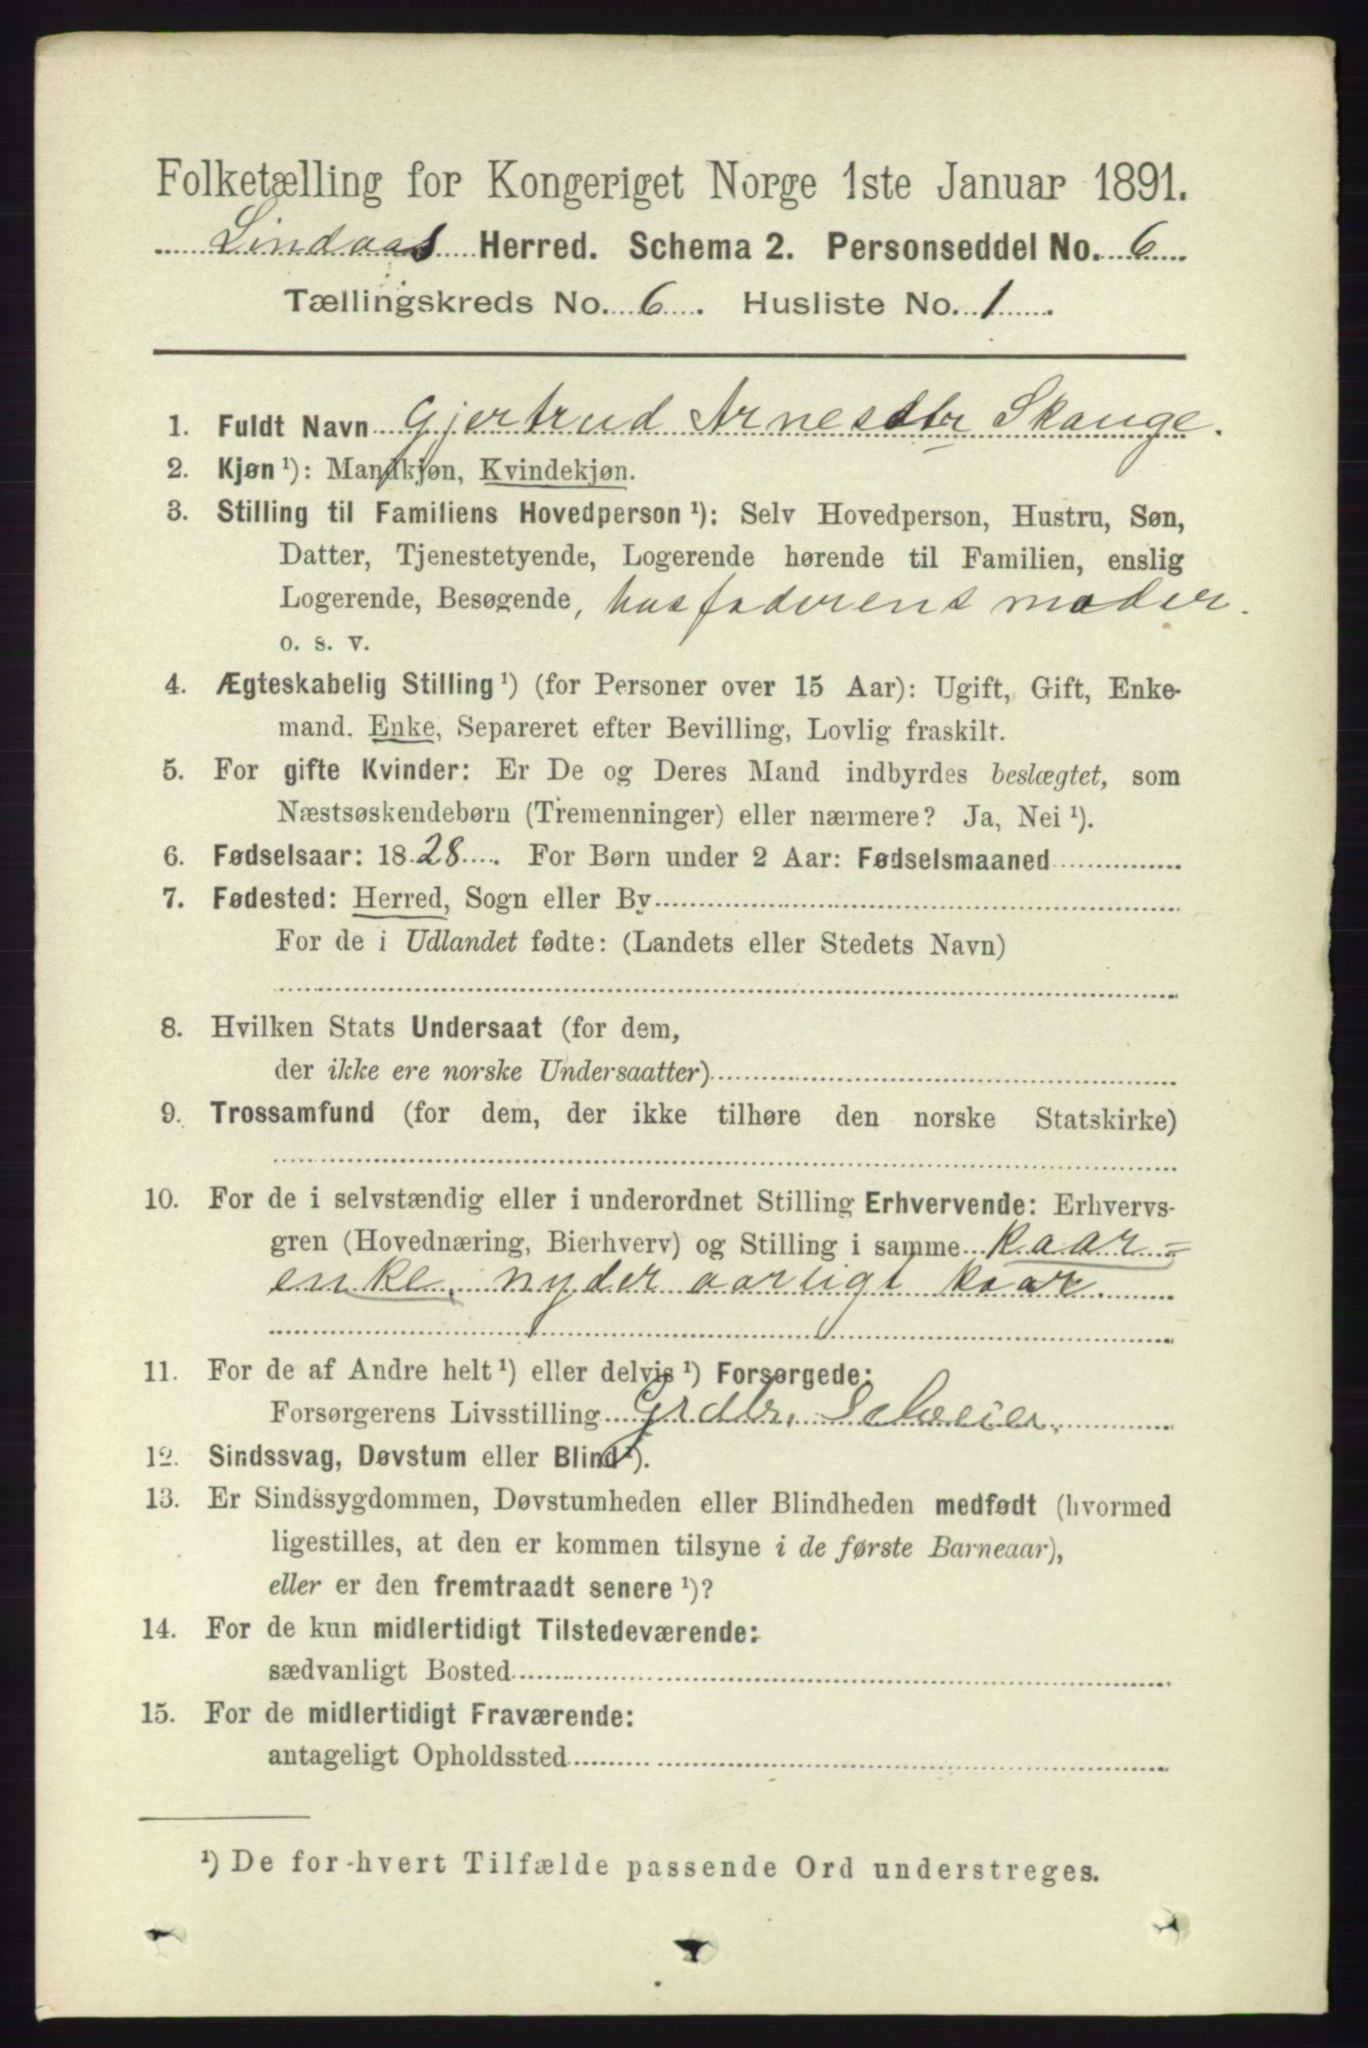 Folketælling for Kongeriget Norge 1ste Januar 1891.
Lindaas Herred. Schema 2. Personseddel No. 6
Tællingskreds No. 6. Husliste No. 1
1. Fuldt Navn Gjertrud Arnesdtr Skauge.
2. Kjøn ¹): Mandkjøn, Kvindekjøn.
3. Stilling til Familiens Hovedperson ¹): Selv Hovedperson, Hustru, Søn,
Datter, Tjenestetyende, Logerende hørende til Familien, enslig
Logerende, Besøgende, husfaderens moder.
o. s. v.
4. Ægteskabelig Stilling ¹) (for Personer over 15 Aar): Ugift, Gift, Enke-
mand. Enke, Separeret efter Bevilling, Lovlig fraskilt.
5. For gifte Kvinder: Er De og Deres Mand indbyrdes beslægtet, som
Næstsøskendebørn (Tremenninger) eller nærmere? Ja, Nei ¹).
6. Fødselsaar: 1828. For Børn under 2 Aar: Fødselsmaaned
7. Fødested: Herred, Sogn eller By
For de i Udlandet fødte: (Landets eller Stedets Navn)
8. Hvilken Stats Undersaat (for dem,
der ikke ere norske Undersaatter)
9. Trossamfund (for dem, der ikke tilhøre den norske Statskirke)
10. For de i selvstændig eller i underordnet Stilling Erhvervende: Erhvervs-
gren (Hovednæring, Bierhverv) og Stilling i samme kaar=
enke, nyder aarligt kaar.
11. For de af Andre helt ¹) eller delvis ¹) Forsørgede:
Forsørgerens Livsstilling Grdbr. Seleier.
12. Sindssvag, Døvstum eller Blind ¹).
13. Er Sindssygdommen, Døvstumheden eller Blindheden medfødt (hvormed
ligestilles, at den er kommen tilsyne i de første Barneaar),
eller er den fremtraadt senere ¹)?
14. For de kun midlertidigt Tilstedeværende:
sædvanligt Bosted
15. For de midlertidigt Fraværende:
antageligt Opholdssted
¹) De for hvert Tilfælde passende Ord understreges.